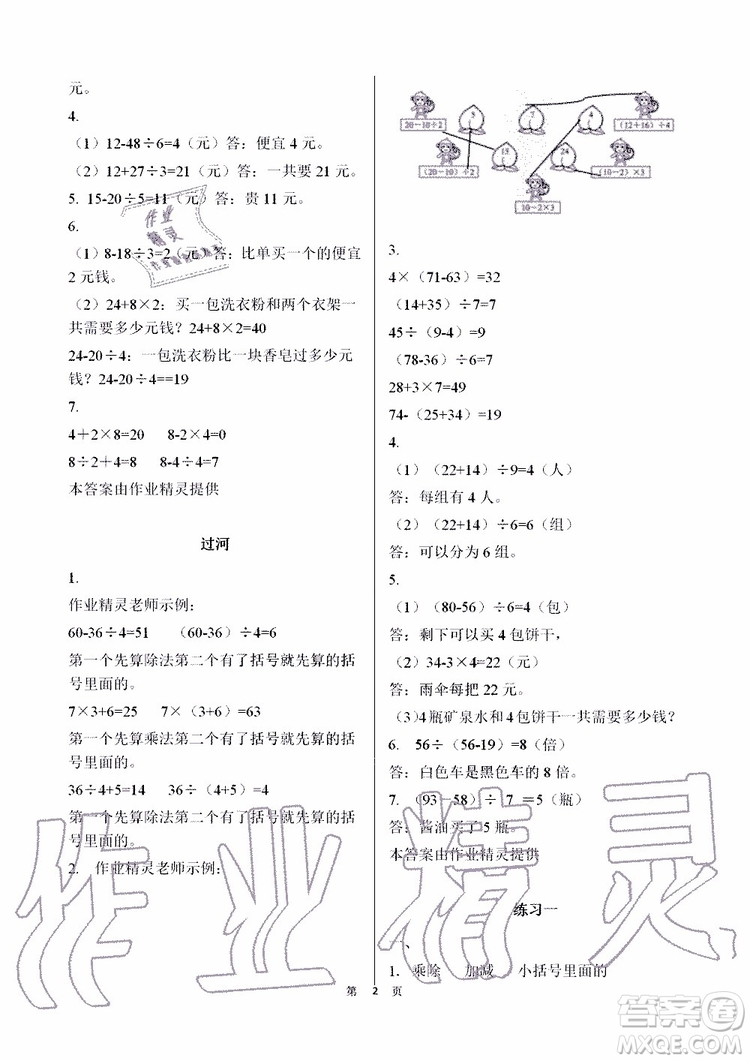 元。
4.
（1）12-48÷6=4（元）答：便宜 4 元。
（2）12+27÷3=21（元）答：一共要 21 元。
5. 15-20÷5=11（元）答：贵 11 元。
6.
（1）8-18÷3=2（元）答：比单买一个的便宜
2 元钱。
（2）24+8×2：买一包洗衣粉和两个衣架一
共需要多少元钱？24+8×2=40
24-20÷4：一包洗衣粉比一块香皂过多少元
钱？24-20÷4==19
7.
4+2×8=20 8-2×4=0
8÷2+4=8 8-4÷4=7
本答案由作业精灵提供
过河
1.
作业精灵老师示例：
60-36÷4=51 （60-36）÷4=6
第一个先算除法第二个有了括号就先算的括
号里面的。
7×3+6=25 7×（3+6）=63
第一个先算乘法第二个有了括号就先算的括
号里面的。
36÷4+5=14 36÷（4+5）=4
第一个先算除法第二个有了括号就先算的括
号里面的。
2. 作业精灵老师示例：
20-10÷2
5
7
4
（12+16）÷4
15
24
（20-10）÷2
（10-2）×3
10-2×3
3.
4×（71-63）=32
（14+35）÷7=7
45÷（9-4）=9
（78-36）÷6=7
28+3×7=49
74-（25+34）=15
4.
（1）（22+14）÷9=4（人）
答：每组有 4 人。
（2）（22+14）÷6=6（组）
答：可以分为 6 组。
5.
（1）（80-56）÷6=4（包）
答：剩下可以买 4 包饼干，
（2）34-3×4=22（元）
答：雨伞每把 22 元。
（3）4瓶矿泉水和4包饼干一共需要多少钱？
6. 56÷（56-19）=8（倍）
答：白色车是黑色车的 8 倍。
7. （93-58）÷ 7 =5（瓶）
答：酱油买了 5 瓶。
本答案由作业精灵提供
练习一
一、
1. 乘除 加减 小括号里面的
第 2 页
作业精灵
作业
精灵
答案圈
MXQE.COM